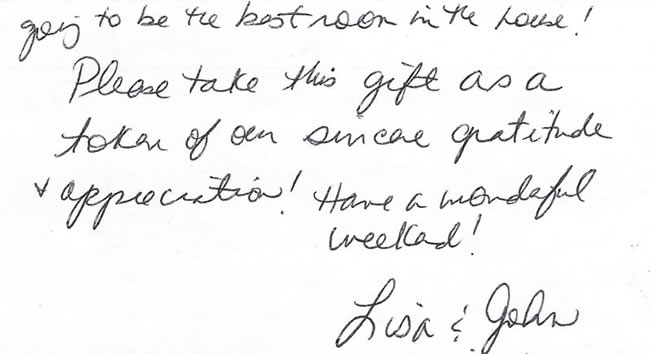 going to be the best room in the house!
Please take this gift as a
token of our sincere gratitude
& appreciation! Have a wonderful
weekend!
Lisa & John